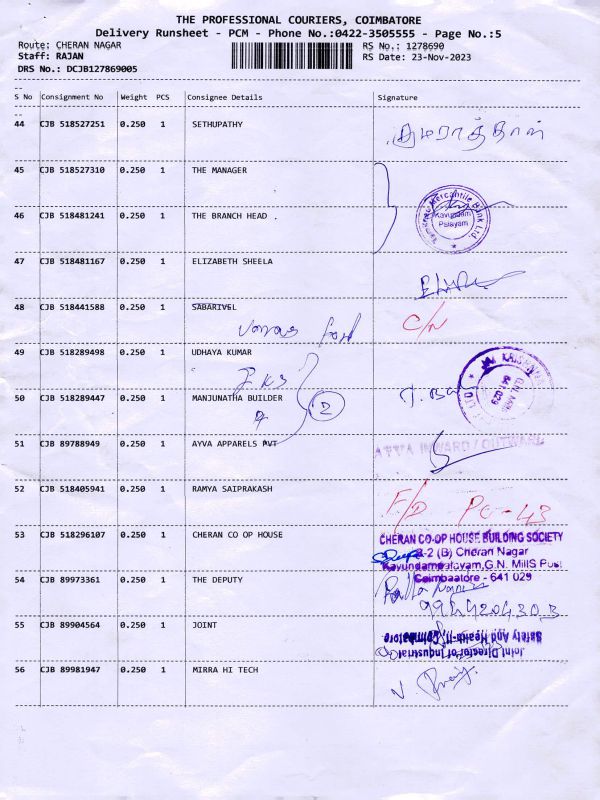 THE PROFESSIONAL COURIERS, COIMBATORE
Delivery Runsheet - PCM - Phone No.:0422-3505555 - Page No.:5
Route: CHERAN NAGAR RS No.: 1278690
Staff: RAJAN RS Date: 23-Nov-2023
DRS No.: DCJB127869005
S No Consignment No Weight PCS Consignee Details Signature
44 CJB 518527251 0.250 1 SETHUPATHY
45 CJB 518527310 0.250 1 THE MANAGER
46 CJB 518481241 0.250 1 THE BRANCH HEAD .
Mercantile Bank Ltd.
Kavundam
Palayam
47 CJB 518481167 0.250 1 ELIZABETH SHEELA
48 CJB 518441588 0.250 1 SABARIVEL C/N
49 CJB 518289498 0.250 1 UDHAYA KUMAR
50 CJB 518289447 0.250 1 MANJUNATHA BUILDER 2
641 029
51 CJB 89788949 0.250 1 AYVA APPARELS PVT AYVA INWARD / OUTWARD
52 CJB 518405941 0.250 1 RAMYA SAIPRAKASH F/D PC-43
53 CJB 518296107 0.250 1 CHERAN CO OP HOUSE CHERAN CO-OP HOUSE BUILDING SOCIETY
B-2 (B) Cheran Nagar
Kavundampalayam, G.N. Mills Post
Coimbaatore - 641 029
54 CJB 89973361 0.250 1 THE DEPUTY
55 CJB 89904564 0.250 1 JOINT
Joint Director of Industrial
Safety And Health-II, Coimbatore
56 CJB 89981947 0.250 1 MIRRA HI TECH